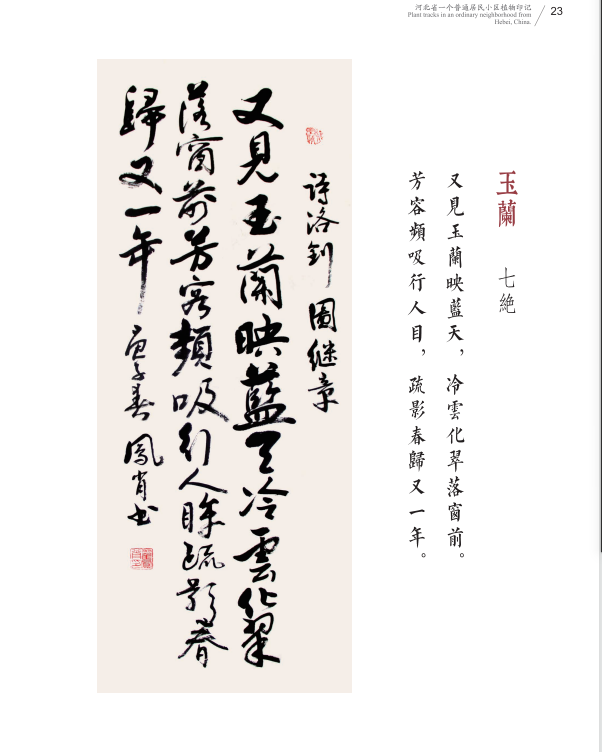 河北省一个普通居民小区植物印记
Plant tracks in an ordinary neighborhood from
Hebei, China.
23
玉蘭 七絕
又見玉蘭映藍天，冷雲化翠落窗前。
芳容頻吸行人目，疏影春歸又一年。
詩洛釗 圖继章
又見玉蘭映藍天冷雲化翠
落窗前芳容頻吸行人眸疏影春
歸又一年 庚子春 鳳肖书